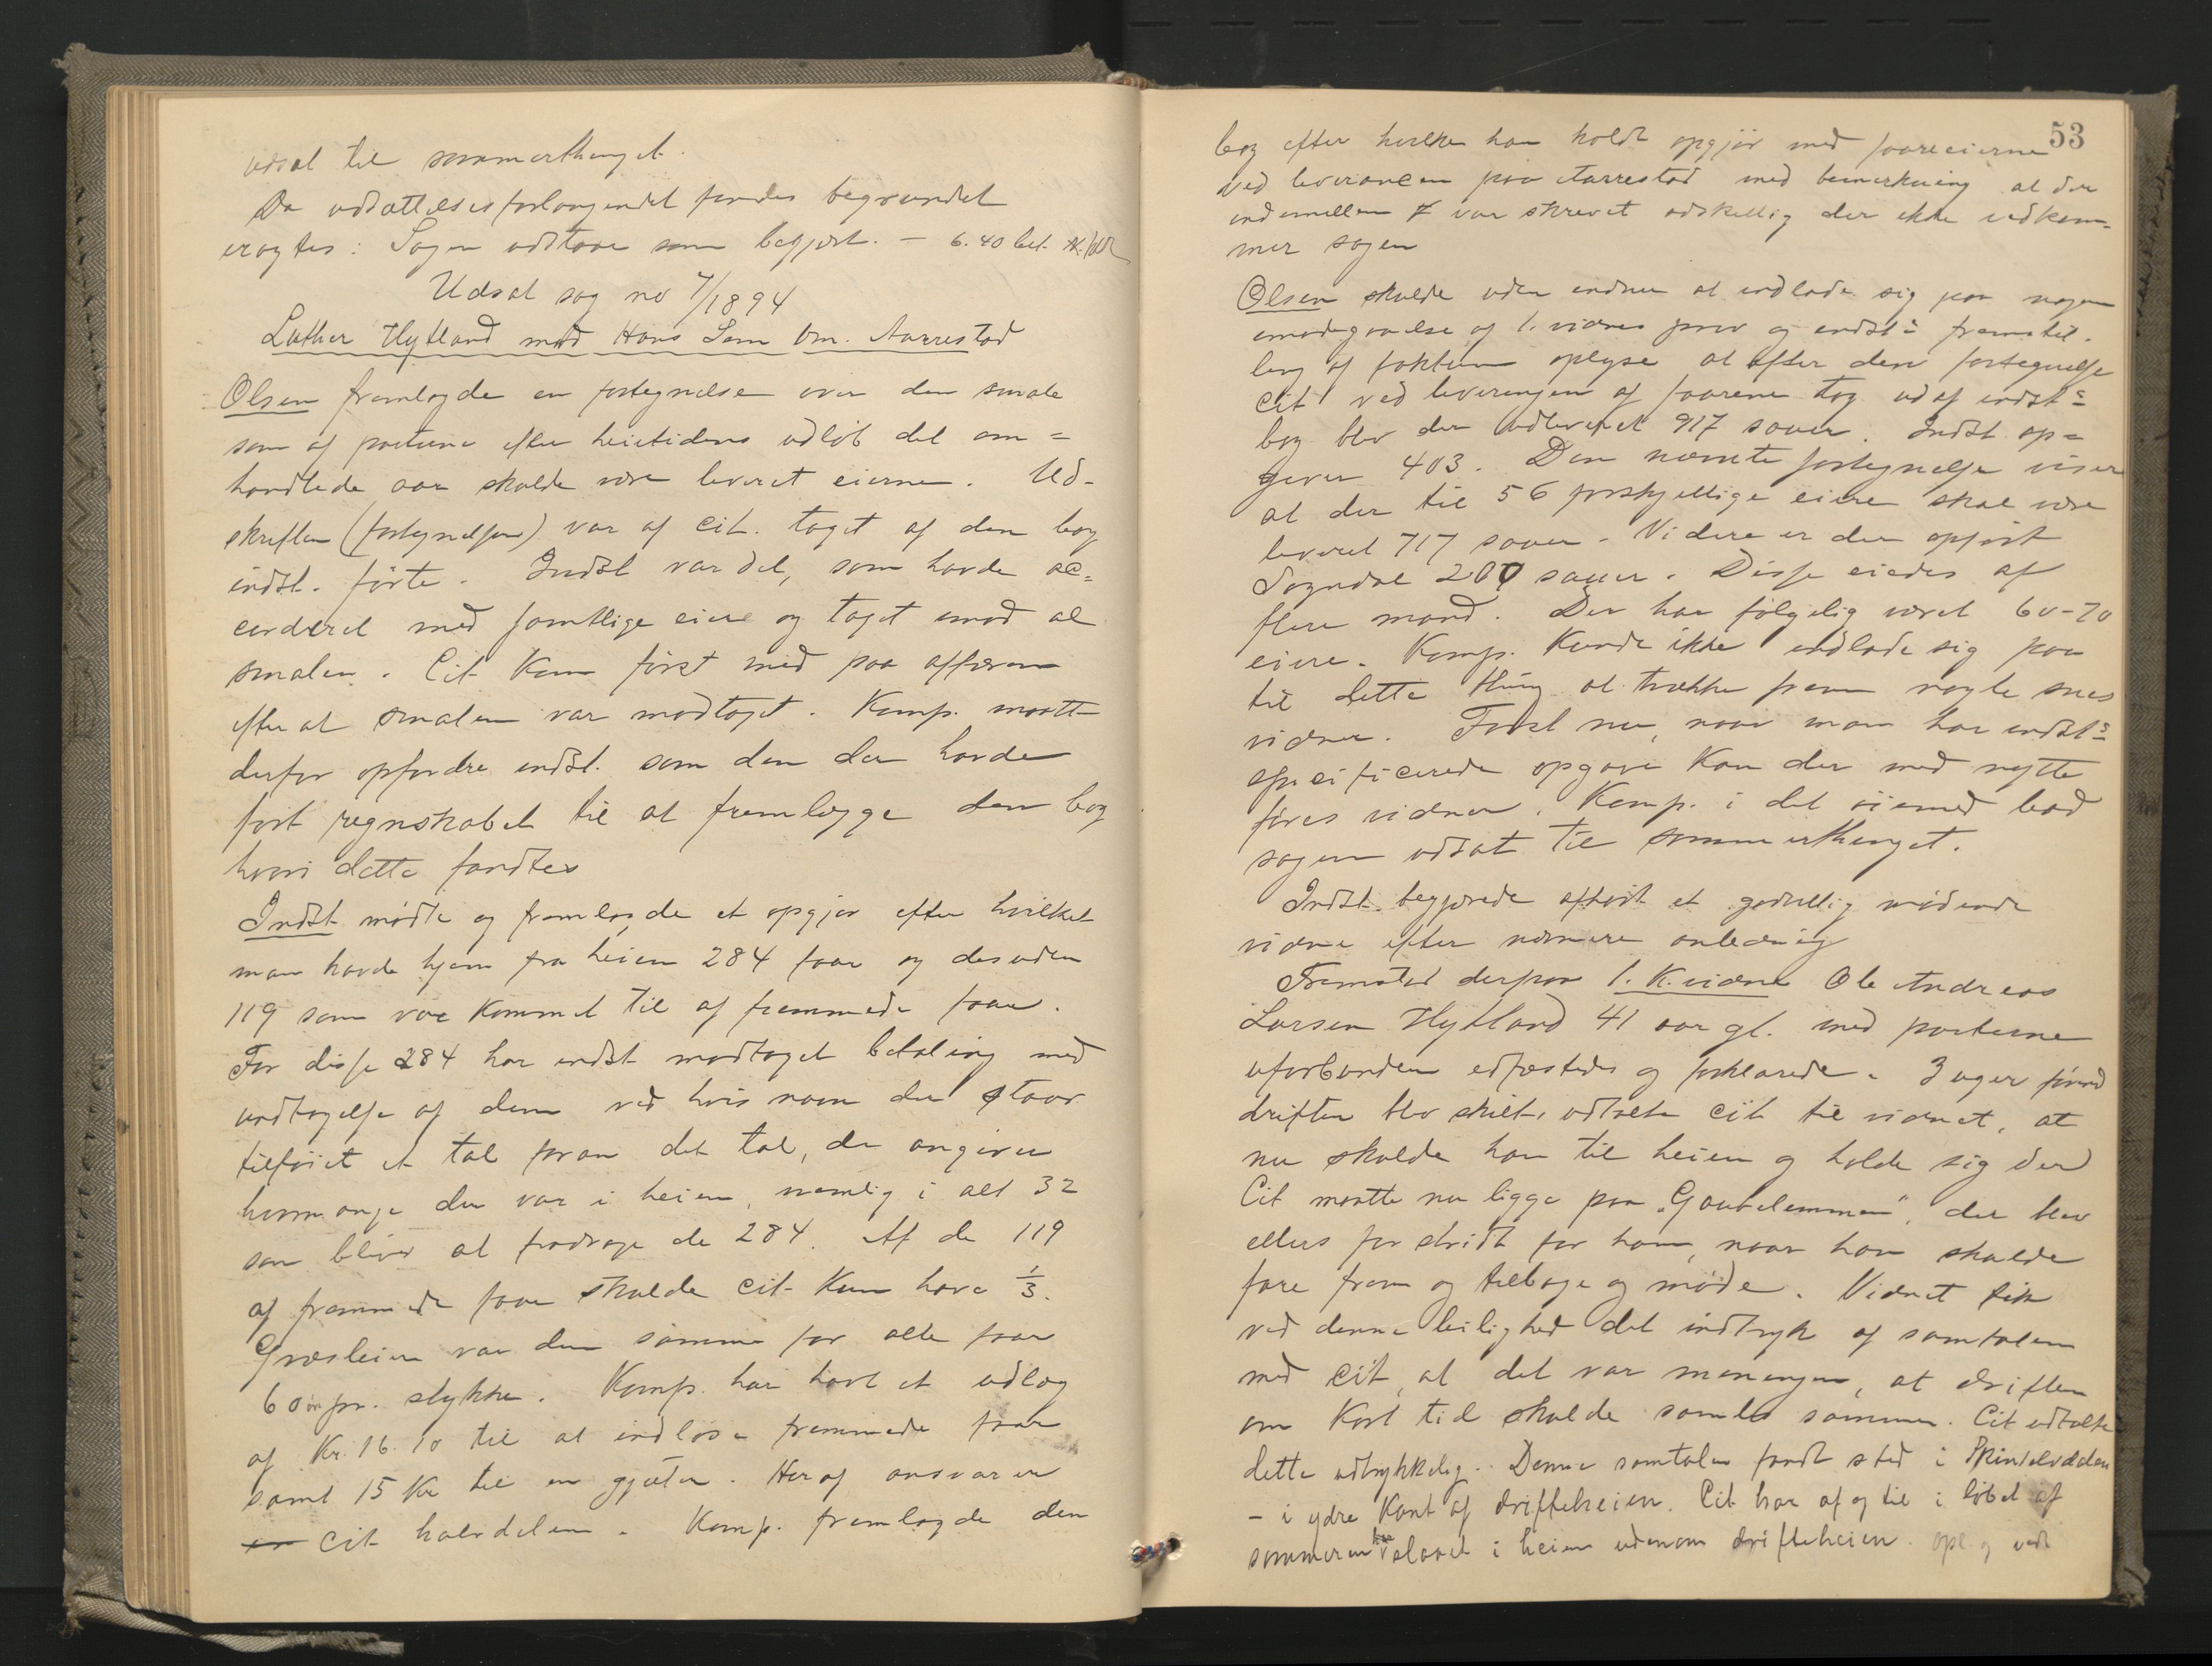 udsat til sommerthinget.
Da udsættelsesforlangendet fandtes begrundet
eragtes: Sagen udstaar som begjært. – 6.40 bet.
Udsat sag no 7/1894
Luther Hytland mod Hans Lem Om. Aarrestad
Olsen fremlagde en fortegnelse over den smale
som af parterne efter heietidens udløb det om=
handlede aar skulde være leveret eierne. Ud-
skriften (fortegnelsen) var af cit. taget af den bog
indst. førte. Indst var det, som havde ac=
corderet med samtlige eiere og taget imod al
smalen. Cit kom først med paa affæren
efter at smalen var modtaget. Komp. maatte
derfor opfordre indst. som den der havde
ført regnskabet til at fremlægge den bog
hvori dette fandtes
Indst mødte og fremlagde et opgjør efter hvilket
man havde hjem fra heien 284 faar og desuden
119 som var kommet til af fremmede faar.
For disse 284 har indst modtaget betaling med
undtagelse af dem ved hvis navn der staar
tilføiet et tal foran det tal, der angiver
hvormange der var i heien, nemlig i alt 32
som bliver at fradrage de 284. Af de 119
af fremmede faar skulde cit kun have 1/3.
Græsleien var den samme for alle faar
60 øre pr. stykke. Komp. har havt et udlæg
af Kr. 16.10 til at indløse fremmede faar
samt 15 Kr til en gjæter. Heraf ansvarer
cit halvdelen. Komp. fremlagde den
53
bog efter hvilken han holdt opgjør med faareeierne
ved leverancen paa Aarrestad med bemerkning at der
indimellem var skrevet adskillig der ikke vedkom=
mer sagen
Olsen skulde uden endnu at indlade sig paa nogen
imødegaaelse af 1. vidnes prov og indst's fremstil=
ling af faktum oplyse at efter den fortegnelse
cit ved leveringen af faarene tog ud af indst's
bog blev der udleveret 917 sauer. Indst op=
giver 403. Den nævnte fortegnelse viser
at der til 56 forskjellige eiere skal være
leveret 717 sauer. Videre er der opført
Sogndal 200 sauer. Disse eiedes af
flere mænd. Der har følgelig været 60-70
eiere. Komp. kunde ikke indlade sig paa
til dette thing at trække frem nogle snes
vidner. Først nu, naar man har indst's
specificerede opgave kan der med nytte
føres vidner. Komp. i det øiemed bad
sagen udsat til sommerthinget.
Indst. begjærede afhørt et godvillig mødende
vidne efter nærmere anledning
Fremstod derpaa 1. K. vidne Ole Andreas
Larsen Hytland 41 aar gl. med parterne
uforbunden edfæstedes og forklarede. 3 uger førend
driften blev skilt, udtalte cit til vidnet, at
nu skulde han til heien og holde sig der
Cit maatte nu ligge paa „Gaudelemmen", der blev
ellers for stridt for ham, naar han skulde
fare frem og tilbage og møde. Vidnet fik
ved denne leilighed det indtryk af samtalen
med cit, at det var meningen, at driften
om kort tid skulde samles sammen. Cit udtalte
dette udtrykkelig. Denne samtalen fandt sted i
– i ydre kant af drifteheien. Cit har af og til i løbet af
sommeren i heien udenom drifteheien. opl. og vedt